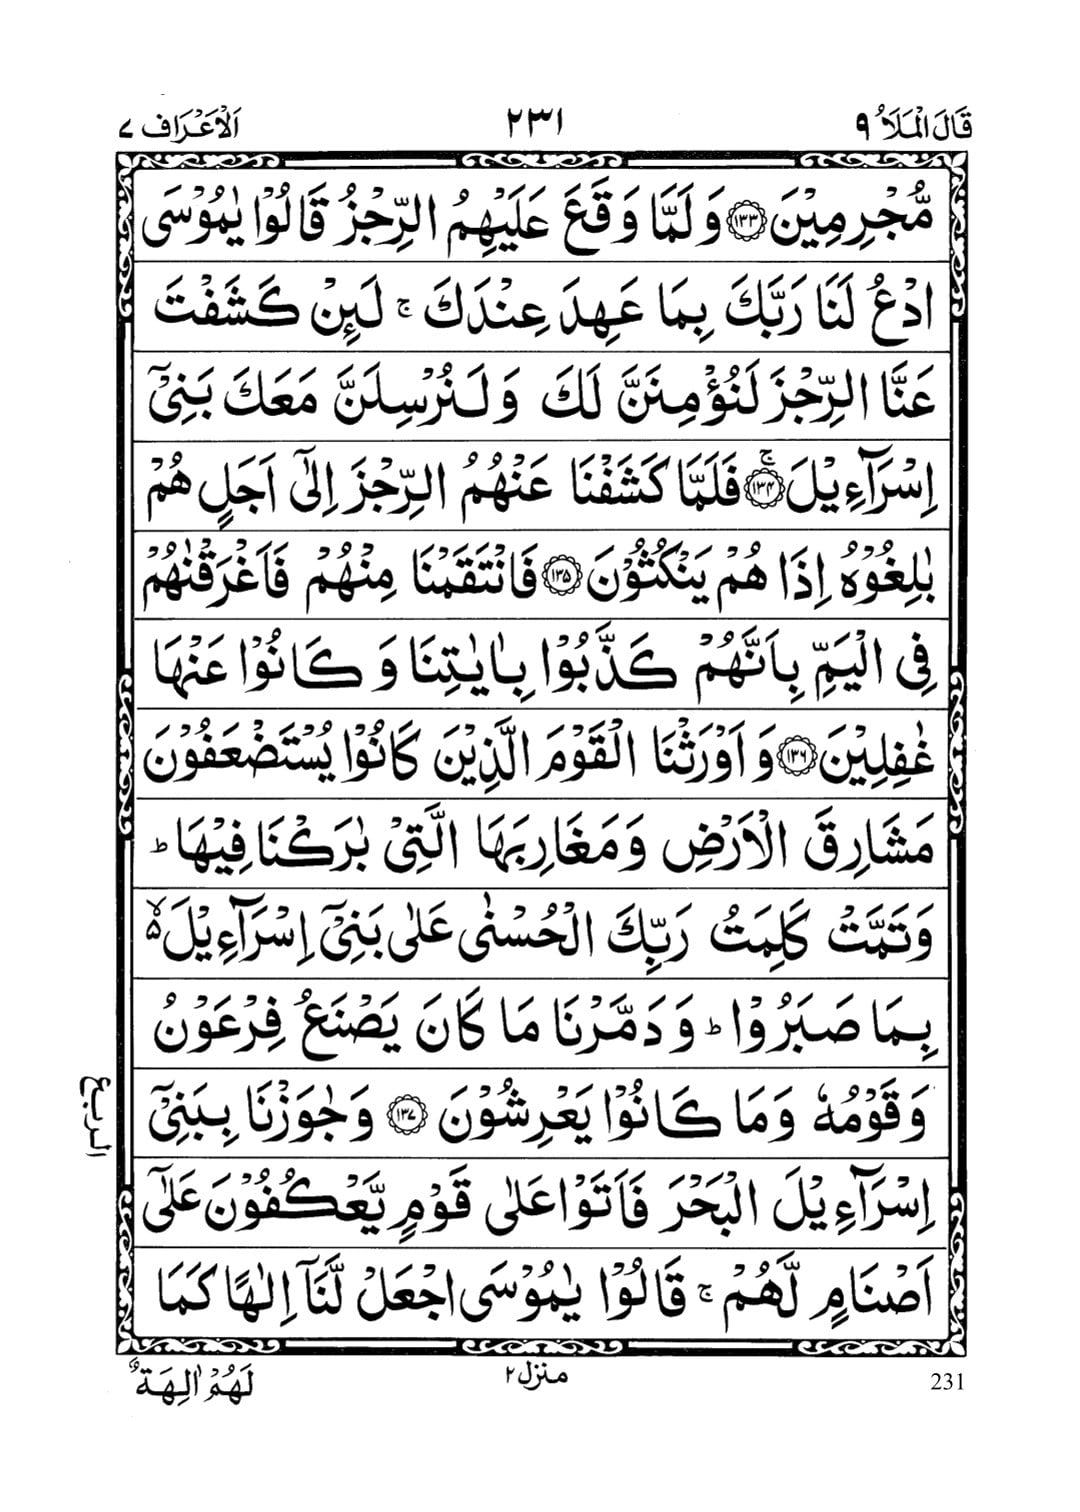 قَالَ الْمَلَاُ ۹ ۲۳۱ اَلْاَعْرَاف ۷
مُّجْرِمِيْنَ ۝۱۳۳ وَ لَمَّا وَقَعَ عَلَيْهِمُ الرِّجْزُ قَالُوْا يٰمُوْسَى
ادْعُ لَنَا رَبَّكَ بِمَا عَهِدَ عِنْدَكَ ۚ لَىِٕنْ كَشَفْتَ
عَنَّا الرِّجْزَ لَنُؤْمِنَنَّ لَكَ وَ لَنُرْسِلَنَّ مَعَكَ بَنِىْۤ
اِسْرَآءِيْلَ ۝۱۳۴ۚ فَلَمَّا كَشَفْنَا عَنْهُمُ الرِّجْزَ اِلٰٓى اَجَلٍ هُمْ
بٰلِغُوْهُ اِذَا هُمْ يَنْكُثُوْنَ ۝۱۳۵ فَانْتَقَمْنَا مِنْهُمْ فَاَغْرَقْنٰهُمْ
فِى الْيَمِّ بِاَنَّهُمْ كَذَّبُوْا بِاٰيٰتِنَا وَ كَانُوْا عَنْهَا
غٰفِلِيْنَ ۝۱۳۶ وَ اَوْرَثْنَا الْقَوْمَ الَّذِيْنَ كَانُوْا يُسْتَضْعَفُوْنَ
مَشَارِقَ الْاَرْضِ وَ مَغَارِبَهَا الَّتِىْ بٰرَكْنَا فِيْهَا ؕ
وَ تَمَّتْ كَلِمَتُ رَبِّكَ الْحُسْنٰى عَلٰى بَنِىْۤ اِسْرَآءِيْلَ ۵ۙ
بِمَا صَبَرُوْا ؕ وَ دَمَّرْنَا مَا كَانَ يَصْنَعُ فِرْعَوْنُ
وَ قَوْمُهٗ وَ مَا كَانُوْا يَعْرِشُوْنَ ۝۱۳۷ وَ جٰوَزْنَا بِبَنِىْۤ
الربع
اِسْرَآءِيْلَ الْبَحْرَ فَاَتَوْا عَلٰى قَوْمٍ يَّعْكُفُوْنَ عَلٰٓى
اَصْنَامٍ لَّهُمْ ۚ قَالُوْا يٰمُوْسَى اجْعَلْ لَّنَاۤ اِلٰهًا كَمَا
لَهُمْ اٰلِهَةٌ منزل ۲ 231